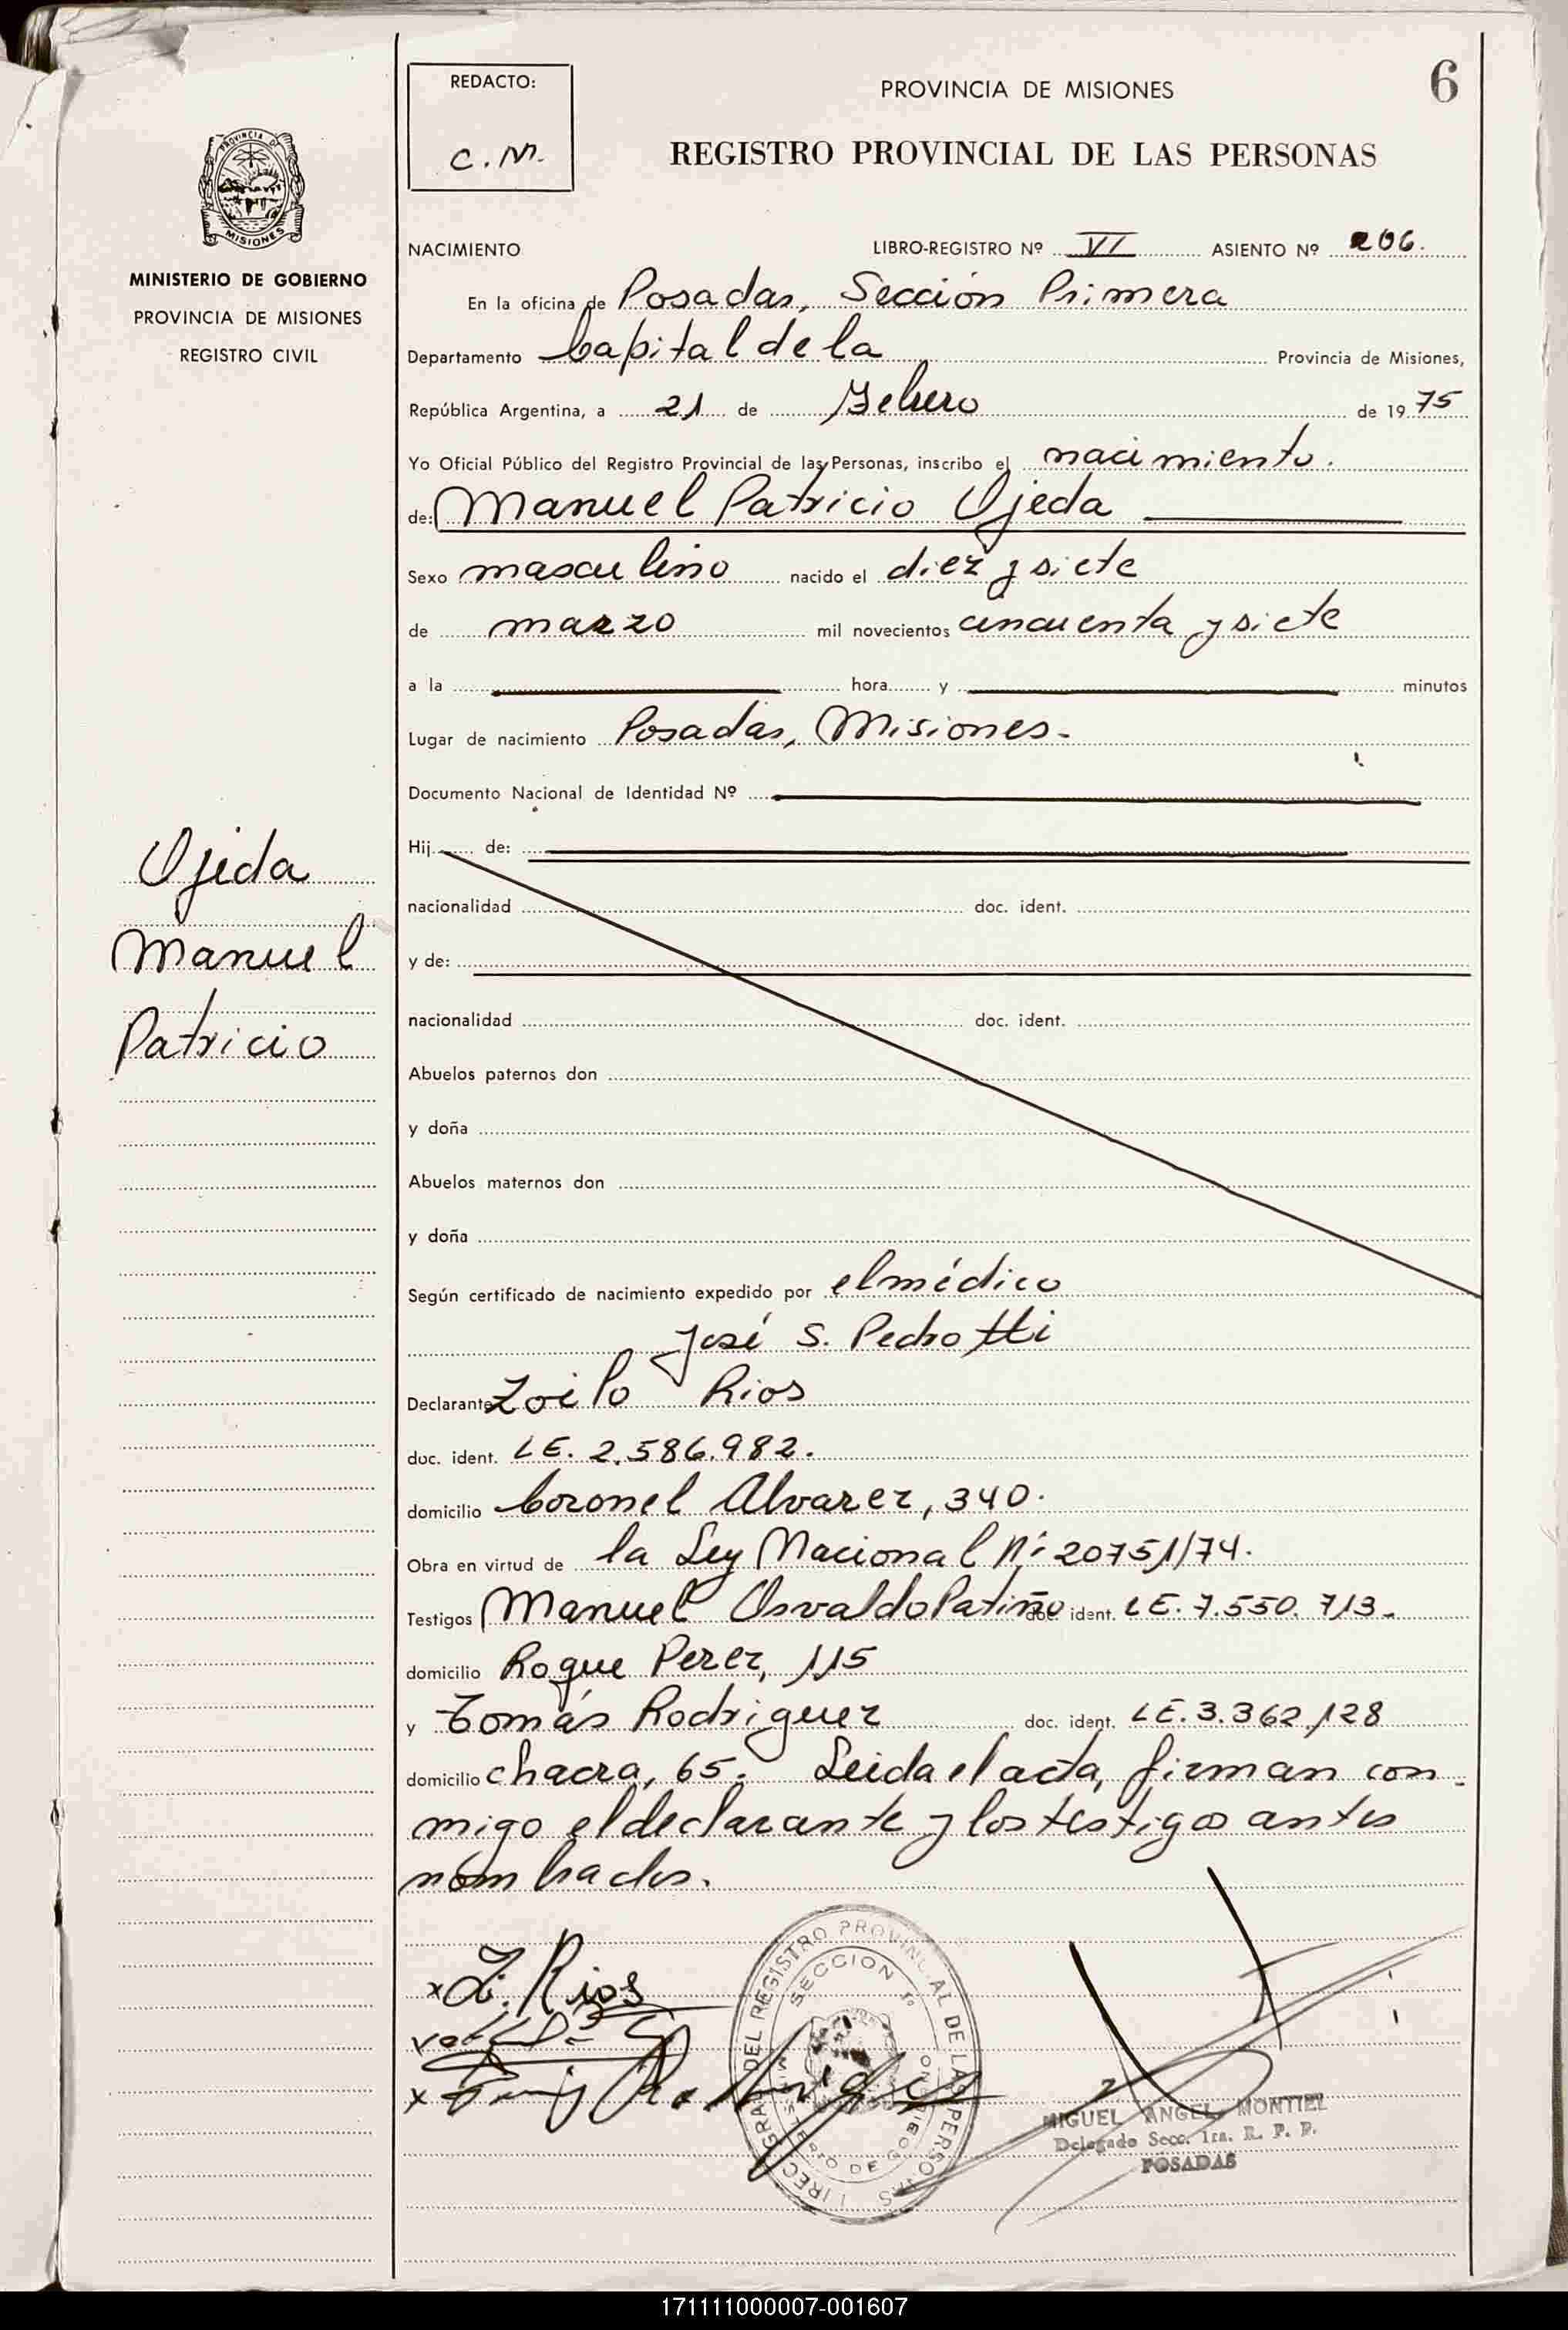 6
REDACTO:
C.M.
PROVINCIA DE MISIONES
REGISTRO PROVINCIAL DE LAS PERSONAS
PROVINCIA DE
MISIONES
MINISTERIO DE GOBIERNO
PROVINCIA DE MISIONES
REGISTRO CIVIL
NACIMIENTO LIBRO-REGISTRO Nº VI ASIENTO Nº 206.
En la oficina de Posadas, Sección Primera
Departamento Capital de la Provincia de Misiones,
República Argentina, a 21 de Febrero de 1975
Yo Oficial Público del Registro Provincial de las Personas, inscribo el nacimiento.
de: Manuel Patricio Ojeda
Sexo masculino nacido el diez y siete
de marzo mil novecientos cincuenta y siete
a la hora y minutos
Lugar de nacimiento Posadas, Misiones.
Documento Nacional de Identidad Nº
Hij de:
nacionalidad doc. ident.
y de:
nacionalidad doc. ident.
Abuelos paternos don
y doña
Abuelos maternos don
y doña
Ojeda
Manuel
Patricio
Según certificado de nacimiento expedido por el médico
José S. Pedrotti
Declarante Zoilo Rios
doc. ident. LE. 2.586.982.
domicilio Coronel Alvarez, 340.
Obra en virtud de la Ley Nacional Nº 20751/74.
Testigos Manuel Osvaldo Patiño doc. ident. LE. 7.550.713.
domicilio Roque Perez, 115
y Tomás Rodriguez doc. ident. LE. 3.362.128
domicilio chacra, 65. Leida el acta, firman con
migo el declarante y los testigos antes
nombrados.
x Z. Rios
SECCION 1º
MINISTERIO DE GOBIERNO
MIGUEL ANGEL MONTIEL
Delegado Secc. 1ra. R. P. P.
POSADAS
171111000007-001607